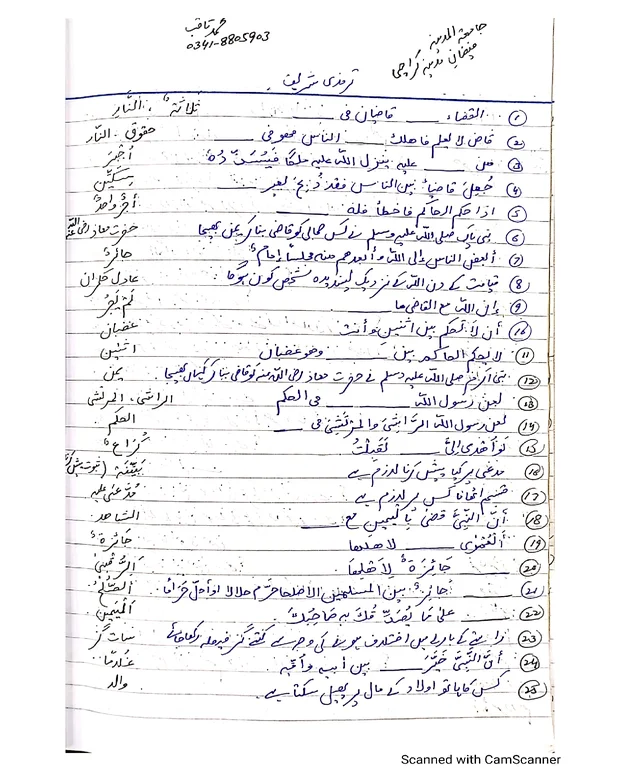 محمد ثاقب
0341-8805903
جامعۃ المدینہ
فیضان مدینہ کراچی
ترمذی شریف
① القضاء ___ قاضیان فی ___ ثلاثة، النّار
② قاض لا يعلم فاهلك ___ الناس فهو فی ___ حقوق، النّار
③ فمن ___ عليه ينزل اللہ عليه ملكا فيُسَدِّدُهُ أُجْبِرَ
④ جُعِلَ قاضياً بين الناس فقد ذُبِحَ بغير ___ سِكِّين
⑤ اذا حكم الحاكم فاخطأ فله ___ أجرٌ واحدٌ
⑥ نبی پاک صلی اللہ علیہ وسلم نے کس صحابی کو قاضی بنا کر یمن بھیجا حضرت معاذ رضی اللہ عنہ
⑦ أبغض الناس إلى اللہ وأبعدهم منه مجلساً إمامٌ جائرٌ
⑧ قیامت کے دن اللہ کے نزدیک پسندیدہ شخص کون ہوگا عادل حکمران
⑨ إن اللہ مع القاضی ما ___ لَمْ يَجُرْ
⑩ أن لا تحكم بين اثنين وأنت غضبان
⑪ لا يحكم الحاكم بين ___ وهو غضبان اثنین
⑫ نبی اکرم صلی اللہ علیہ وسلم نے حضرت معاذ رضی اللہ عنہ کو قاضی بنا کر کہاں بھیجا یمن
⑬ لعن رسول اللہ ___ فی الحکم الراشی، المرتشی
⑭ لعن رسول اللہ الرَّاشِیَ والمُرْتَشِیَ فی ___ الحكم
⑮ لو أُهْدِیَ إلیَّ ___ لَقَبِلْتُ كُرَاعٌ
⑯ مدعی پر کیا پیش کرنا لازم ہے بَيِّنَة (ثبوت پیش
⑰ قسم اٹھانا کس پر لازم ہے مدّعی علیہ
⑱ أنّ النّبیَّ قضی بالیمین مع ___ الشاهد
⑲ العُمْرٰی ___ لاهلها جَائزةٌ
⑳ ___ جَائِزَةٌ لاهلها الرُّقْبٰی
㉑ ___ جائزٌ بين المسلمين الا صلحا حرّم حلالا او أحلّ حرامًا الصُّلْحُ
㉒ ___ علی مَا يُصَدِّقُكَ به صَاحِبُكَ الْيَمِين
㉓ راستے کے بارے میں اختلاف ہونے کی وجہ سے کتنے گز فیصلہ رکھا جائے سات گز
㉔ أنّ النَّبِیَّ خَيَّرَ ___ بين أبيه وأمّه غلاماً
㉕ کس کا ہاتھ اولاد کے مال پر پھیل سکتا ہے والد
Scanned with CamScanner